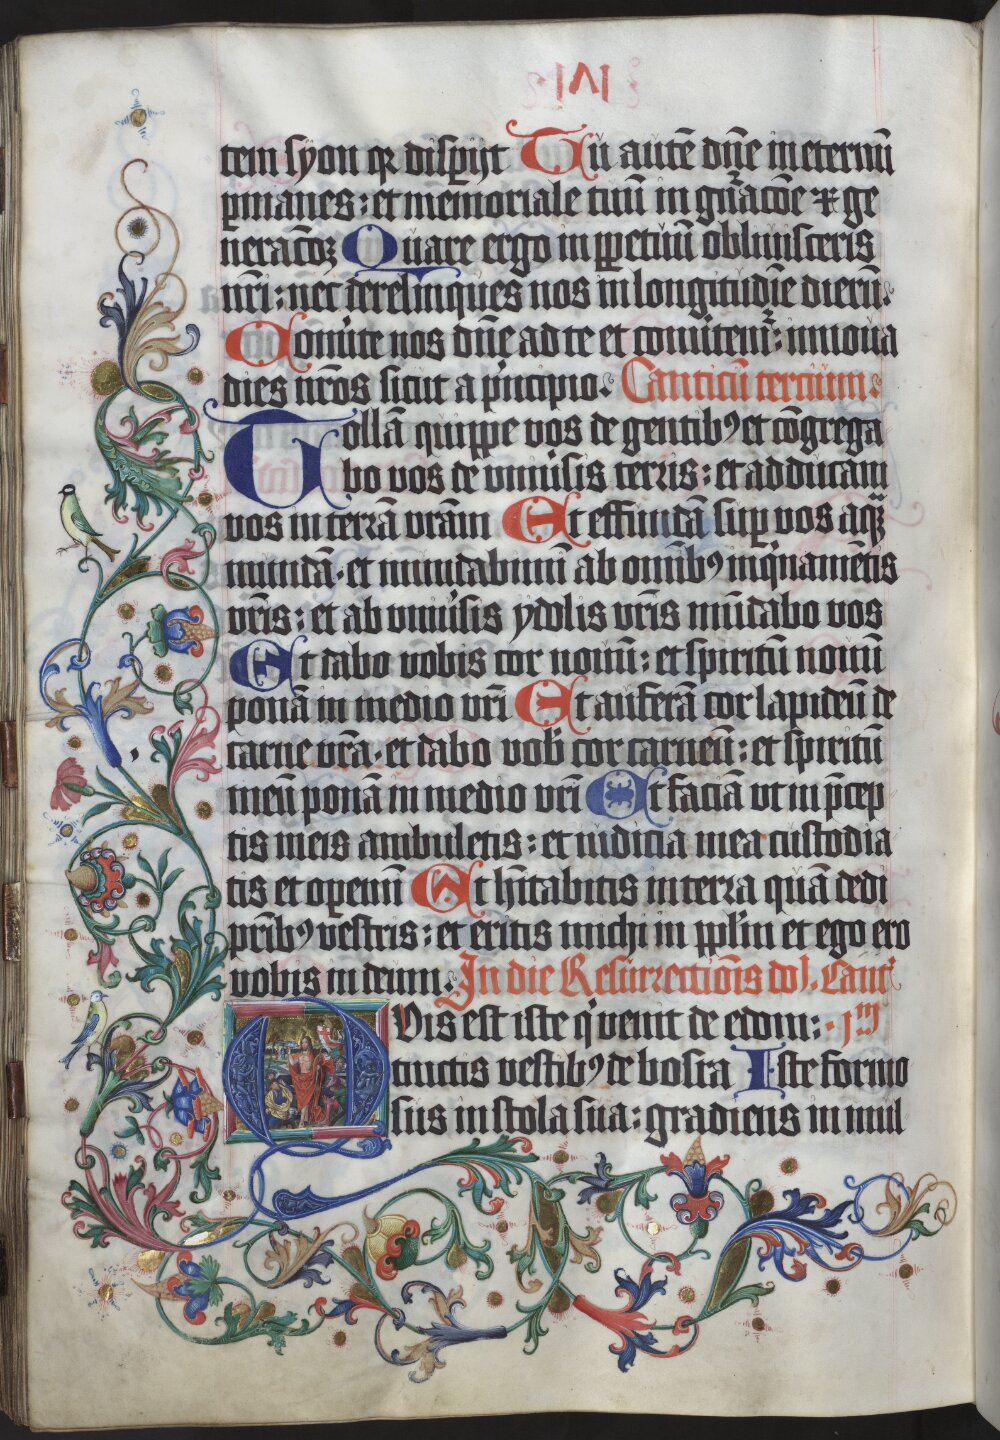 · lvi ·
tem syon qr disp̱ijt Tu autē dn̄e ineternū
ꝑmanes : et memoriale tuū in gn̄acōe ⁊ ge
neracōꝫ Quare ergo in ꝑpetuū obliuisceris
nr̄i : nec derelinques nos in longitudīe dierū ·
Conu͛te nos dn̄e ad te et conu͛temur : innoua
dies nr̄os sicut a pͥncipio · Canticū tercium ·
Tollā quippe vos de gentibꝰ et cōgrega
bo vos de vniu͛sis terris : et adducam
vos in terrā vrām Et effundā suꝑ vos aquā
mundā · et mundabimī ab omībꝰ inqͥnamētis
vr̄is : et ab vniu͛sis ydolis vr̄is mūdabo vos
Et dabo vobis cor nouū : et spiritū nouū
ponā in medio vr̄i Et auferā cor lapideū de
carne vrā · et dabo vob̄ cor carneū : et spiritū
meū ponā in medio vr̄i Et faciā vt in p̄cep
tis meis ambuletis : et iudicia mea custodia
tis et operemī Et hītabitis in terra quā dedi
pr̄ibꝰ vestris : et eritis michi in pp̄lm et ego ero
vobis in deum · In die Resurrectiōis doī · Cant
Quis est iste qͥ venit de edom : · jm
tinctis vestibꝰ de bosra Iste formo
sus in stola sua : gradiens in mul